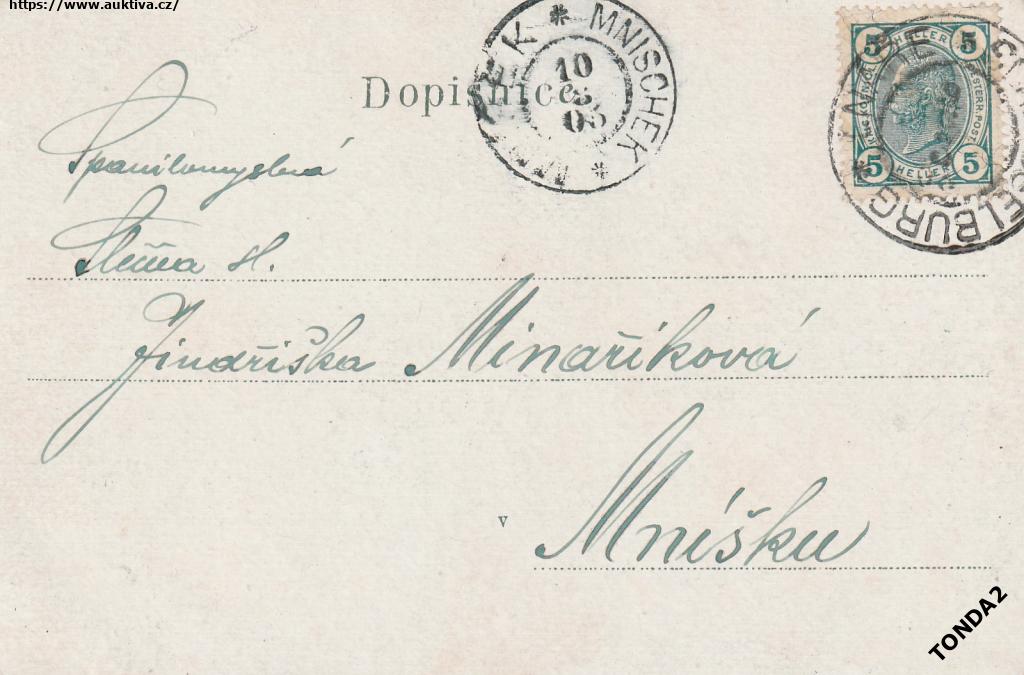 https://www.auktiva.cz/
Dopisnice
MNISCHEK
10
8
05
5 HELLER 5
5 HELLER 5
ELBURG
Spanilomyslná
Slečna H.
Jindřiška Minaříková
v Mníšku
TONDA2